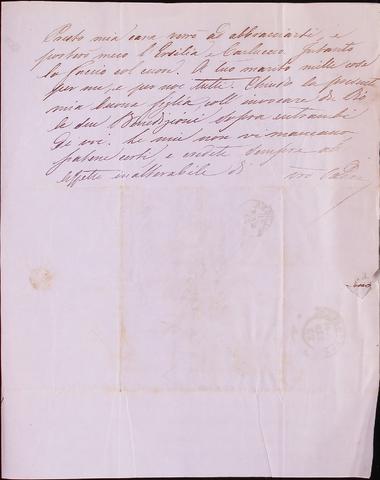 Presto mia cara verrò ad abbracciarti, e
porterò meco l'Ersilia e Carluccio. Intanto
lo faccio col cuore. A tuo marito mille cose
per me, e per noi tutti. Chiudo la presente
mia buona figlia coll'invocare da Dio
le sue Benedizioni sopra entrambi
di voi. Le mie non vi mancano,
siatene certi, e credete sempre al
affetto inalterabile di vro Padre